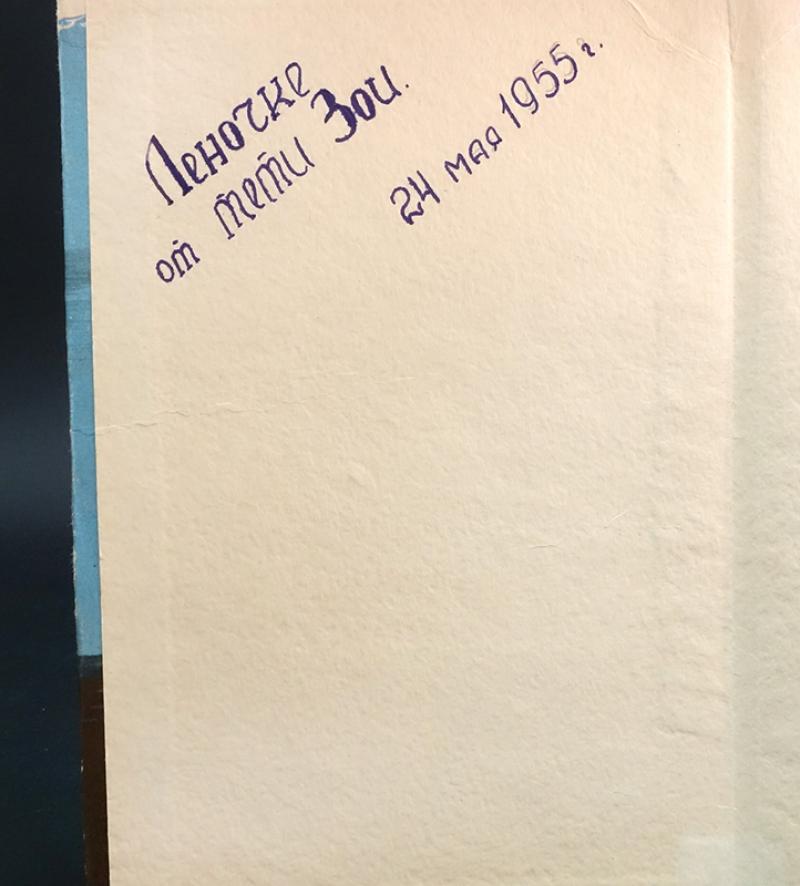 Леночке
от тёти Зои.
24 мая 1955 г.